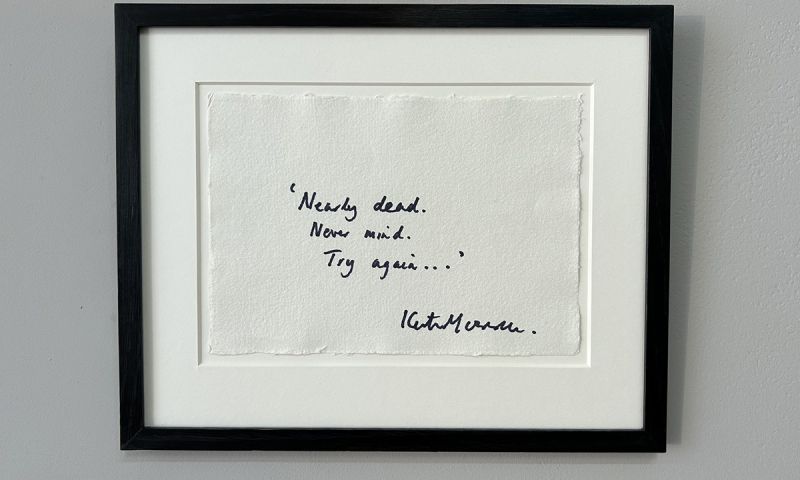 'Nearly dead.
Never mind.
Try again...'